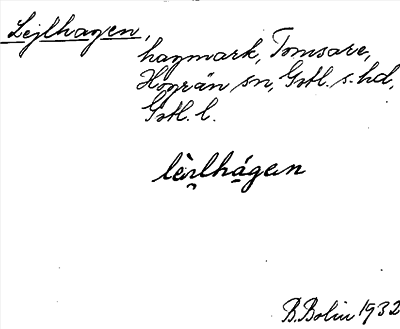 Lejlhagen,
hagmark, Tomsare,
Hogrän sn, Gotl. s. hd,
Gotl. l.
lèɪlhágen
B. Bolin 1932